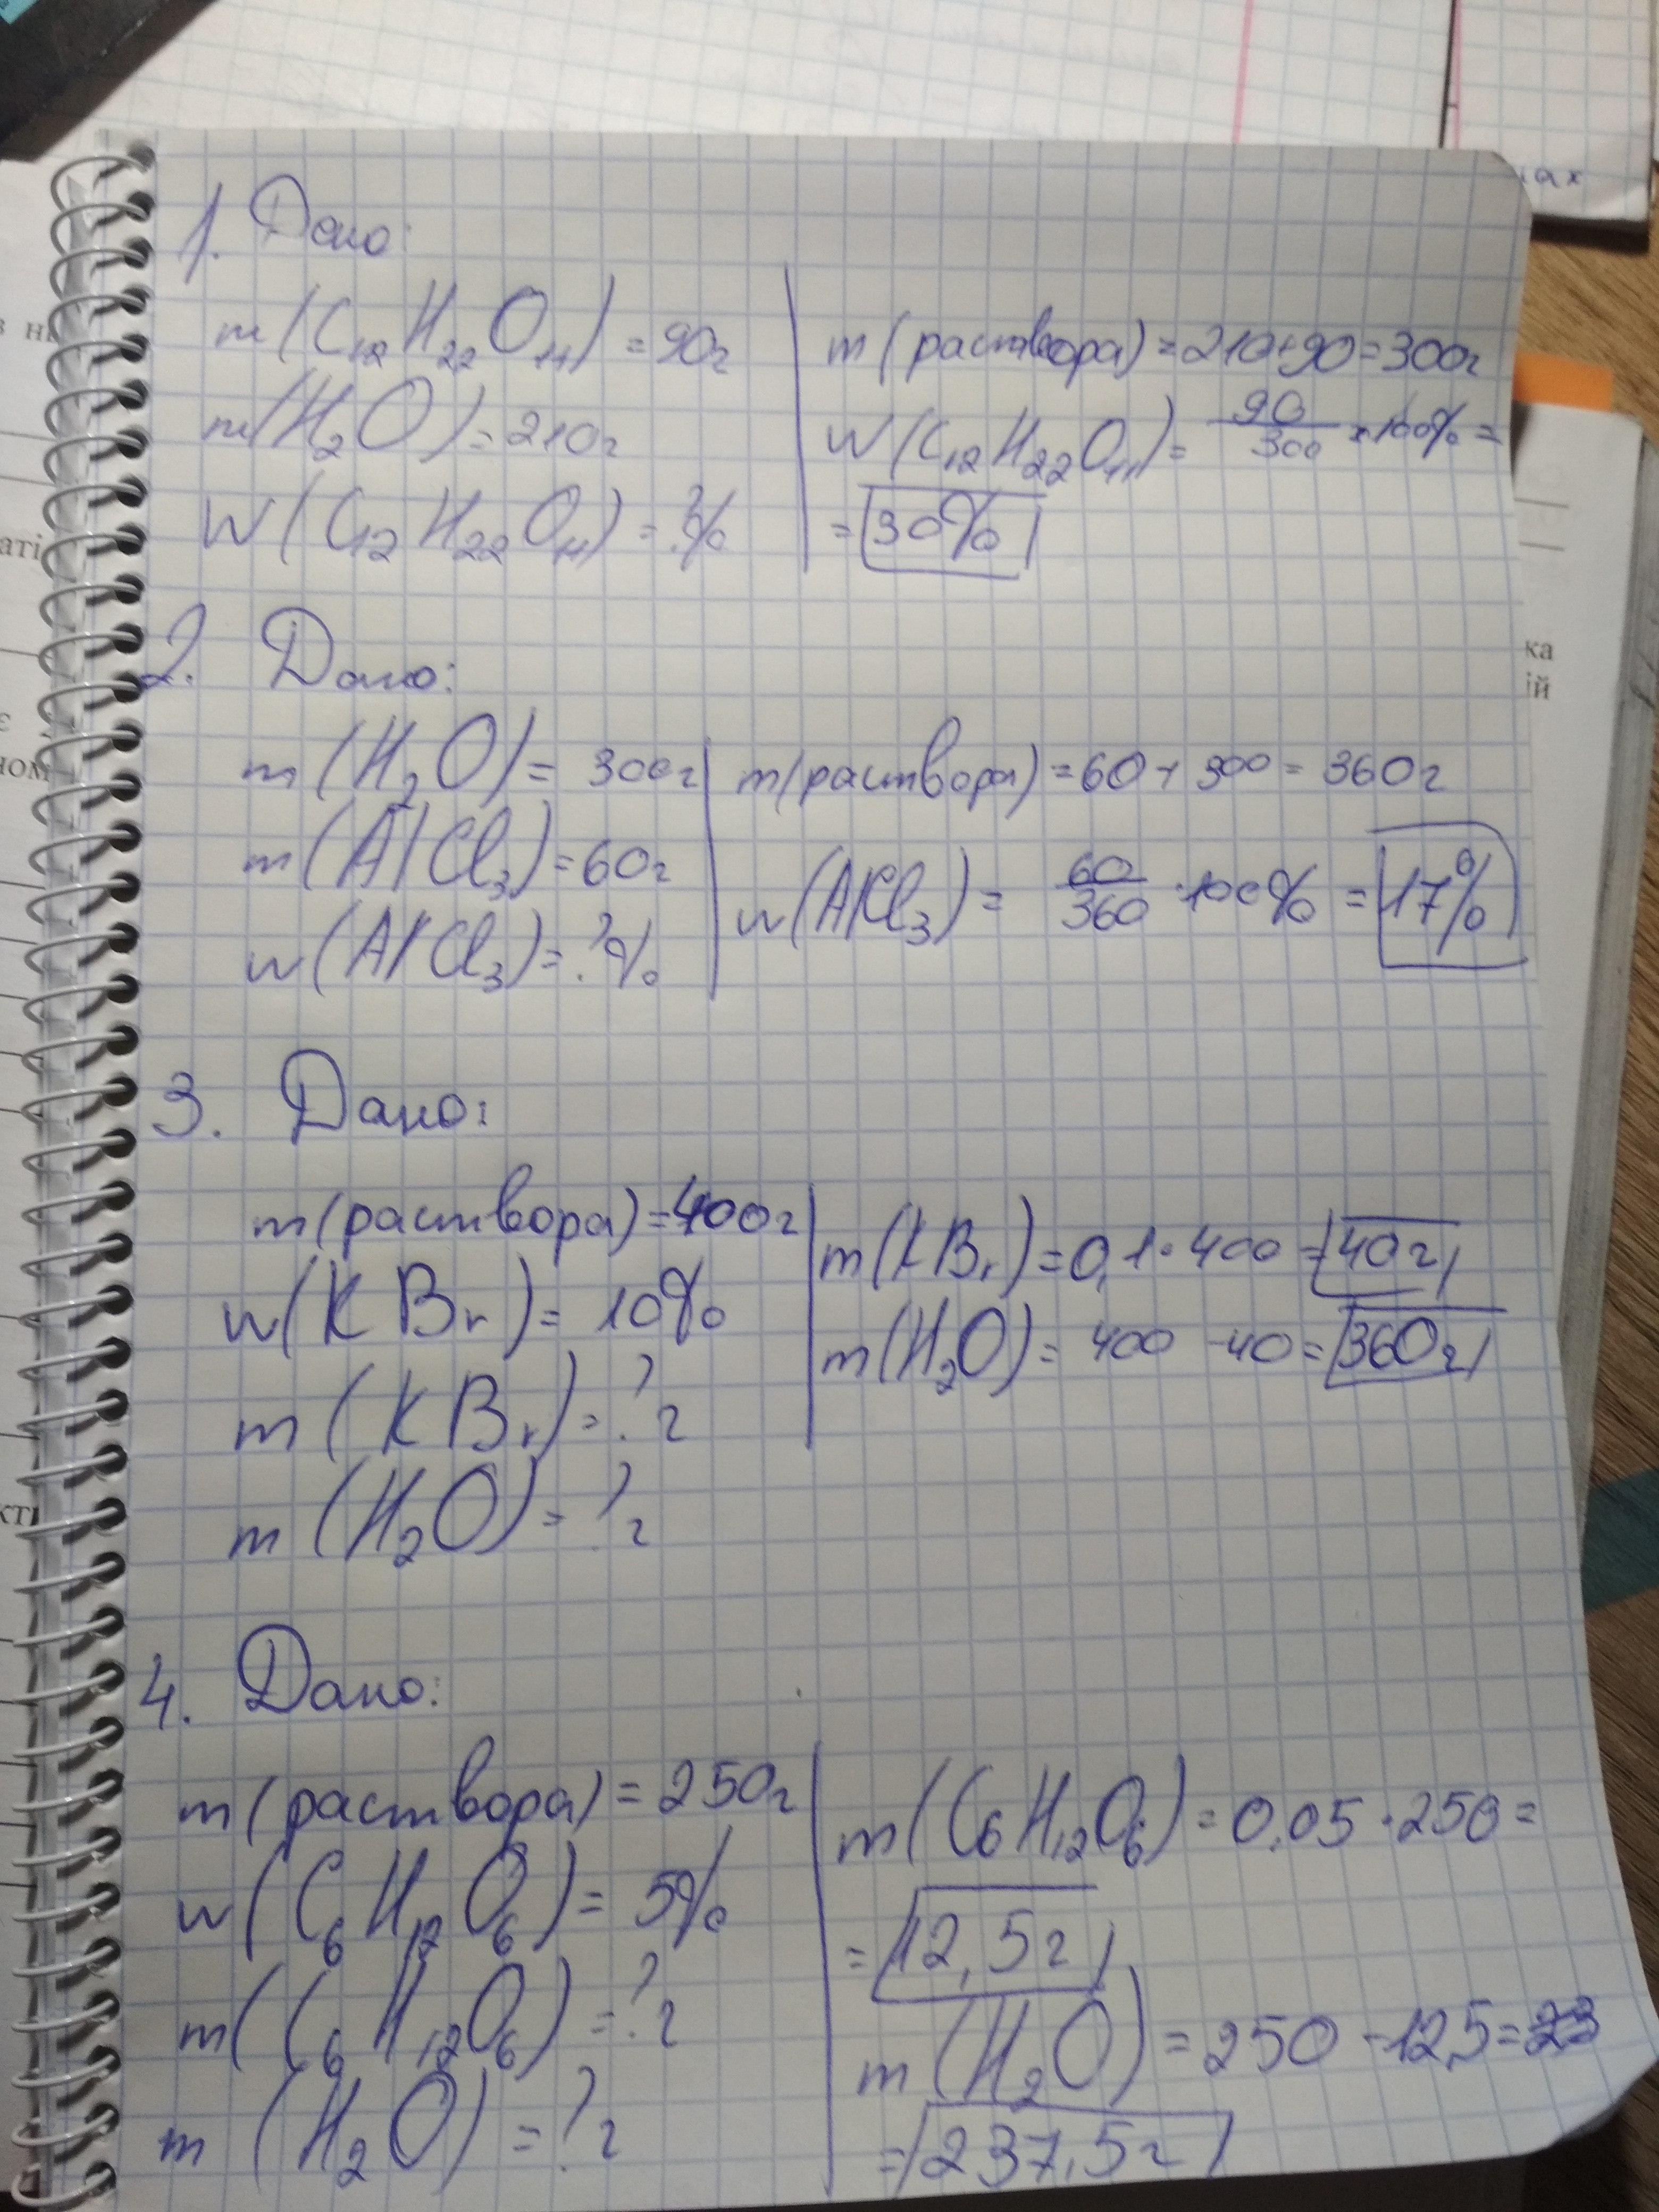 1. Дано:
m(C₁₂H₂₂O₁₁) = 90г
m(H₂O) = 210г
W(C₁₂H₂₂O₁₁) = ?%
m(раствора) = 210+90=300г
W(C₁₂H₂₂O₁₁) = 90/300 ×100% =
= 30%
2. Дано:
m(H₂O) = 300г
m(AlCl₃) = 60г
w(AlCl₃) = ?%
m(раствора) = 60+300 = 360г
w(AlCl₃) = 60/360 ·100% = 17%
3. Дано:
m(раствора) = 400г
w(KBr) = 10%
m(KBr) = ?г
m(H₂O) = ?г
m(KBr) = 0,1·400 = 40г
m(H₂O) = 400 -40 = 360г
4. Дано:
m(раствора) = 250г
w(C₆H₁₂O₆) = 5%
m(C₆H₁₂O₆) = ?г
m(H₂O) = ?г
m(C₆H₁₂O₆) = 0,05·250 =
= 12,5г
m(H₂O) = 250 -12,5= 23
= 237,5г
ах
ка
ій
аті
є
ном